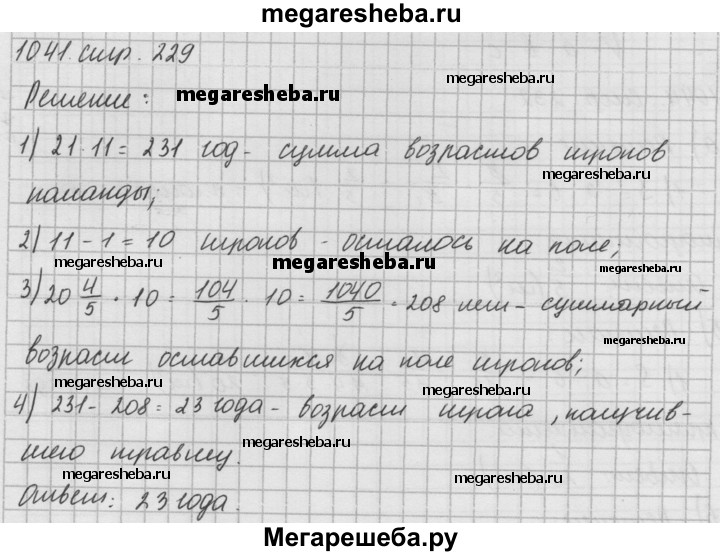 megaresheba.ru
1041. стр. 229
megaresheba.ru
Решение:
megaresheba.ru
1) 21 · 11 = 231 год - сумма возрастов игроков
megaresheba.ru
команды;
2) 11 - 1 = 10 игроков - осталось на поле;
megaresheba.ru megaresheba.ru megaresheba.ru
3) 20 4/5 · 10 = 104/5 · 10 = 1040/5 = 208 лет - суммарный
megaresheba.ru
возраст оставшихся на поле игроков;
megaresheba.ru
4) 231 - 208 = 23 года - возраст игрока, получив-
megaresheba.ru
шего травму.
megaresheba.ru megaresheba.ru
Ответ: 23 года.
Мегарешеба.ру